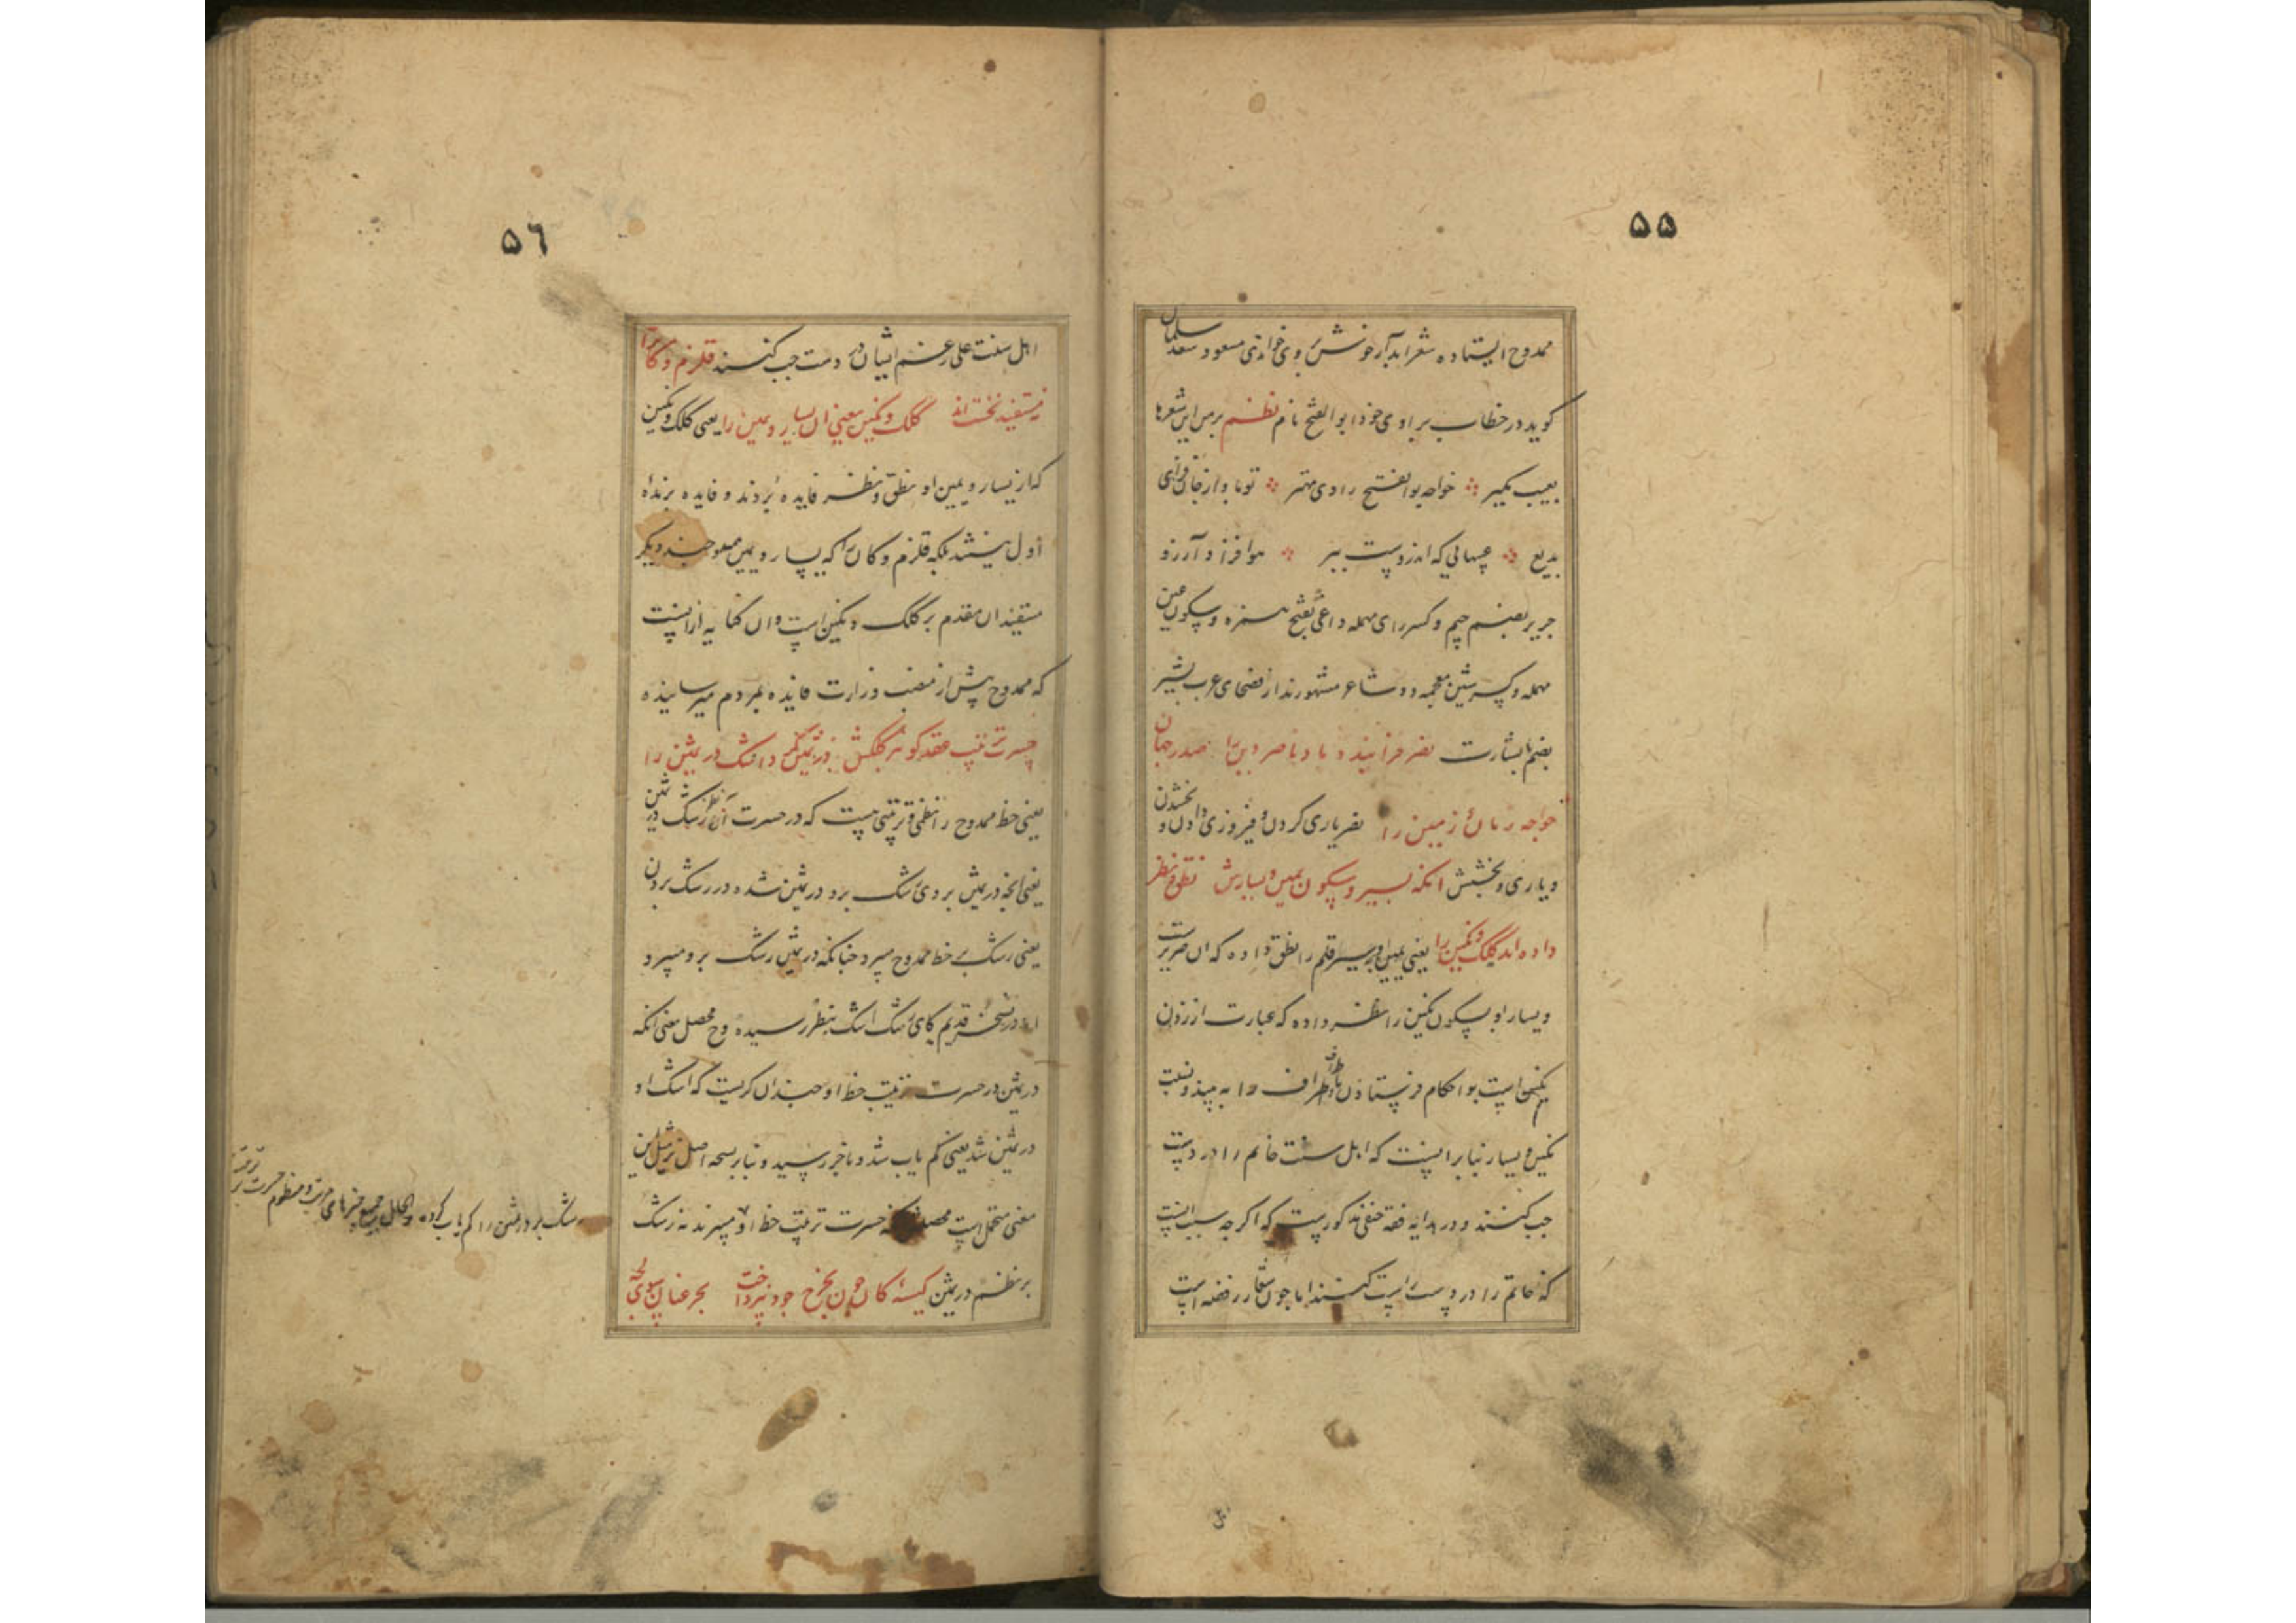 ۵۵
ممدوح ایستاده شعر ابدار خوش بروی خواندی مسعود سعد سلمان
کوید در خطاب براوی خود ابوالفتح نام نظم برمن این شعرها
بعیب مکیر خواجه بوالفتح راوی مهتر تو بآواز جانفزای
بدیع عیبهایی که اندروست ببر هوافزا و آرزو
جریر بضم جیم و کسر رای مهمله و اعشی بفتح همزه و سکون عین
مهمله و کسر شین معجمه دو شاعر مشهورند از فصحای عرب بشیر
بضم بشارت نصر فزاینده باد ناصر دین را صدر جهان
خواجه زمان و زمین را نصر یاری کردن و فیروزی دادن و بخشیدن
و یاری و بخشش انکه بسیر و سکون یمین و یسارش نطق و نظر
داده اند کلک و نکین را یعنی یمین او بسیر قلم را نطق داده که ان صریرست
و یسار او بسکون نکین را نظر داده که عبارت از زدن
نکین است بر احکام فرستادن باطراف و نسبت
نکین و یسار بنا برانست که اهل سنت خاتم را در دست
چپ کنند و در هدایه فقه حنفی مذکورست که اکرچه سبب انست
که خاتم را در دست راست کنند اما چون شعار رفضه است
۵٦
اهل سنت علی رغم ایشان در دست چپ کنند قلزم و کان را
نه مستفید نخست اند کلک و نکین یعنی ان یسار و یمین را یعنی کلک و نکین
که از یسار و یمین او نطق و نظر فایده بردند و فایده برنده
اول نیستند بلکه قلزم و کان که یسار و یمین ممدوحند دیکر
مستفیدان مقدم بر کلک و نکین است و ان کنایه از انست
که ممدوح پیش از منصب وزارت فایده بمردم میرسانیده
حسرت ترتیب عقد کوهر کلکش در ثمین کرد اشک در ثمین را
یعنی خط ممدوح را نظمی و ترتیبی هست که در حسرت آن نظم رشک در ثمین
یعنی انچه در ثمین بر وی رشک برد در ثمین شده در رشک بردن
یعنی رشک بر خط ممدوح میبرد چنانکه در ثمین رشک برو میبرد
در نسخه قدیم بجای رشک اشک بنظر رسیده و ح محصل معنی انکه
در ثمین در حسرت ترتیب خط او چندان کریست که اشک او
در ثمین شد یعنی کم یاب شد و باخر رسید و بنا بر نسخه اصل نیز مثل این
معنی محتمل است محصل انکه حسرت ترتیب خط او میبرند نه رشک
بر نظم در ثمین کیسه کان چون بخرج جود نپرداخت بحر عنان
رشک بر در ثمین را کم یاب کرده